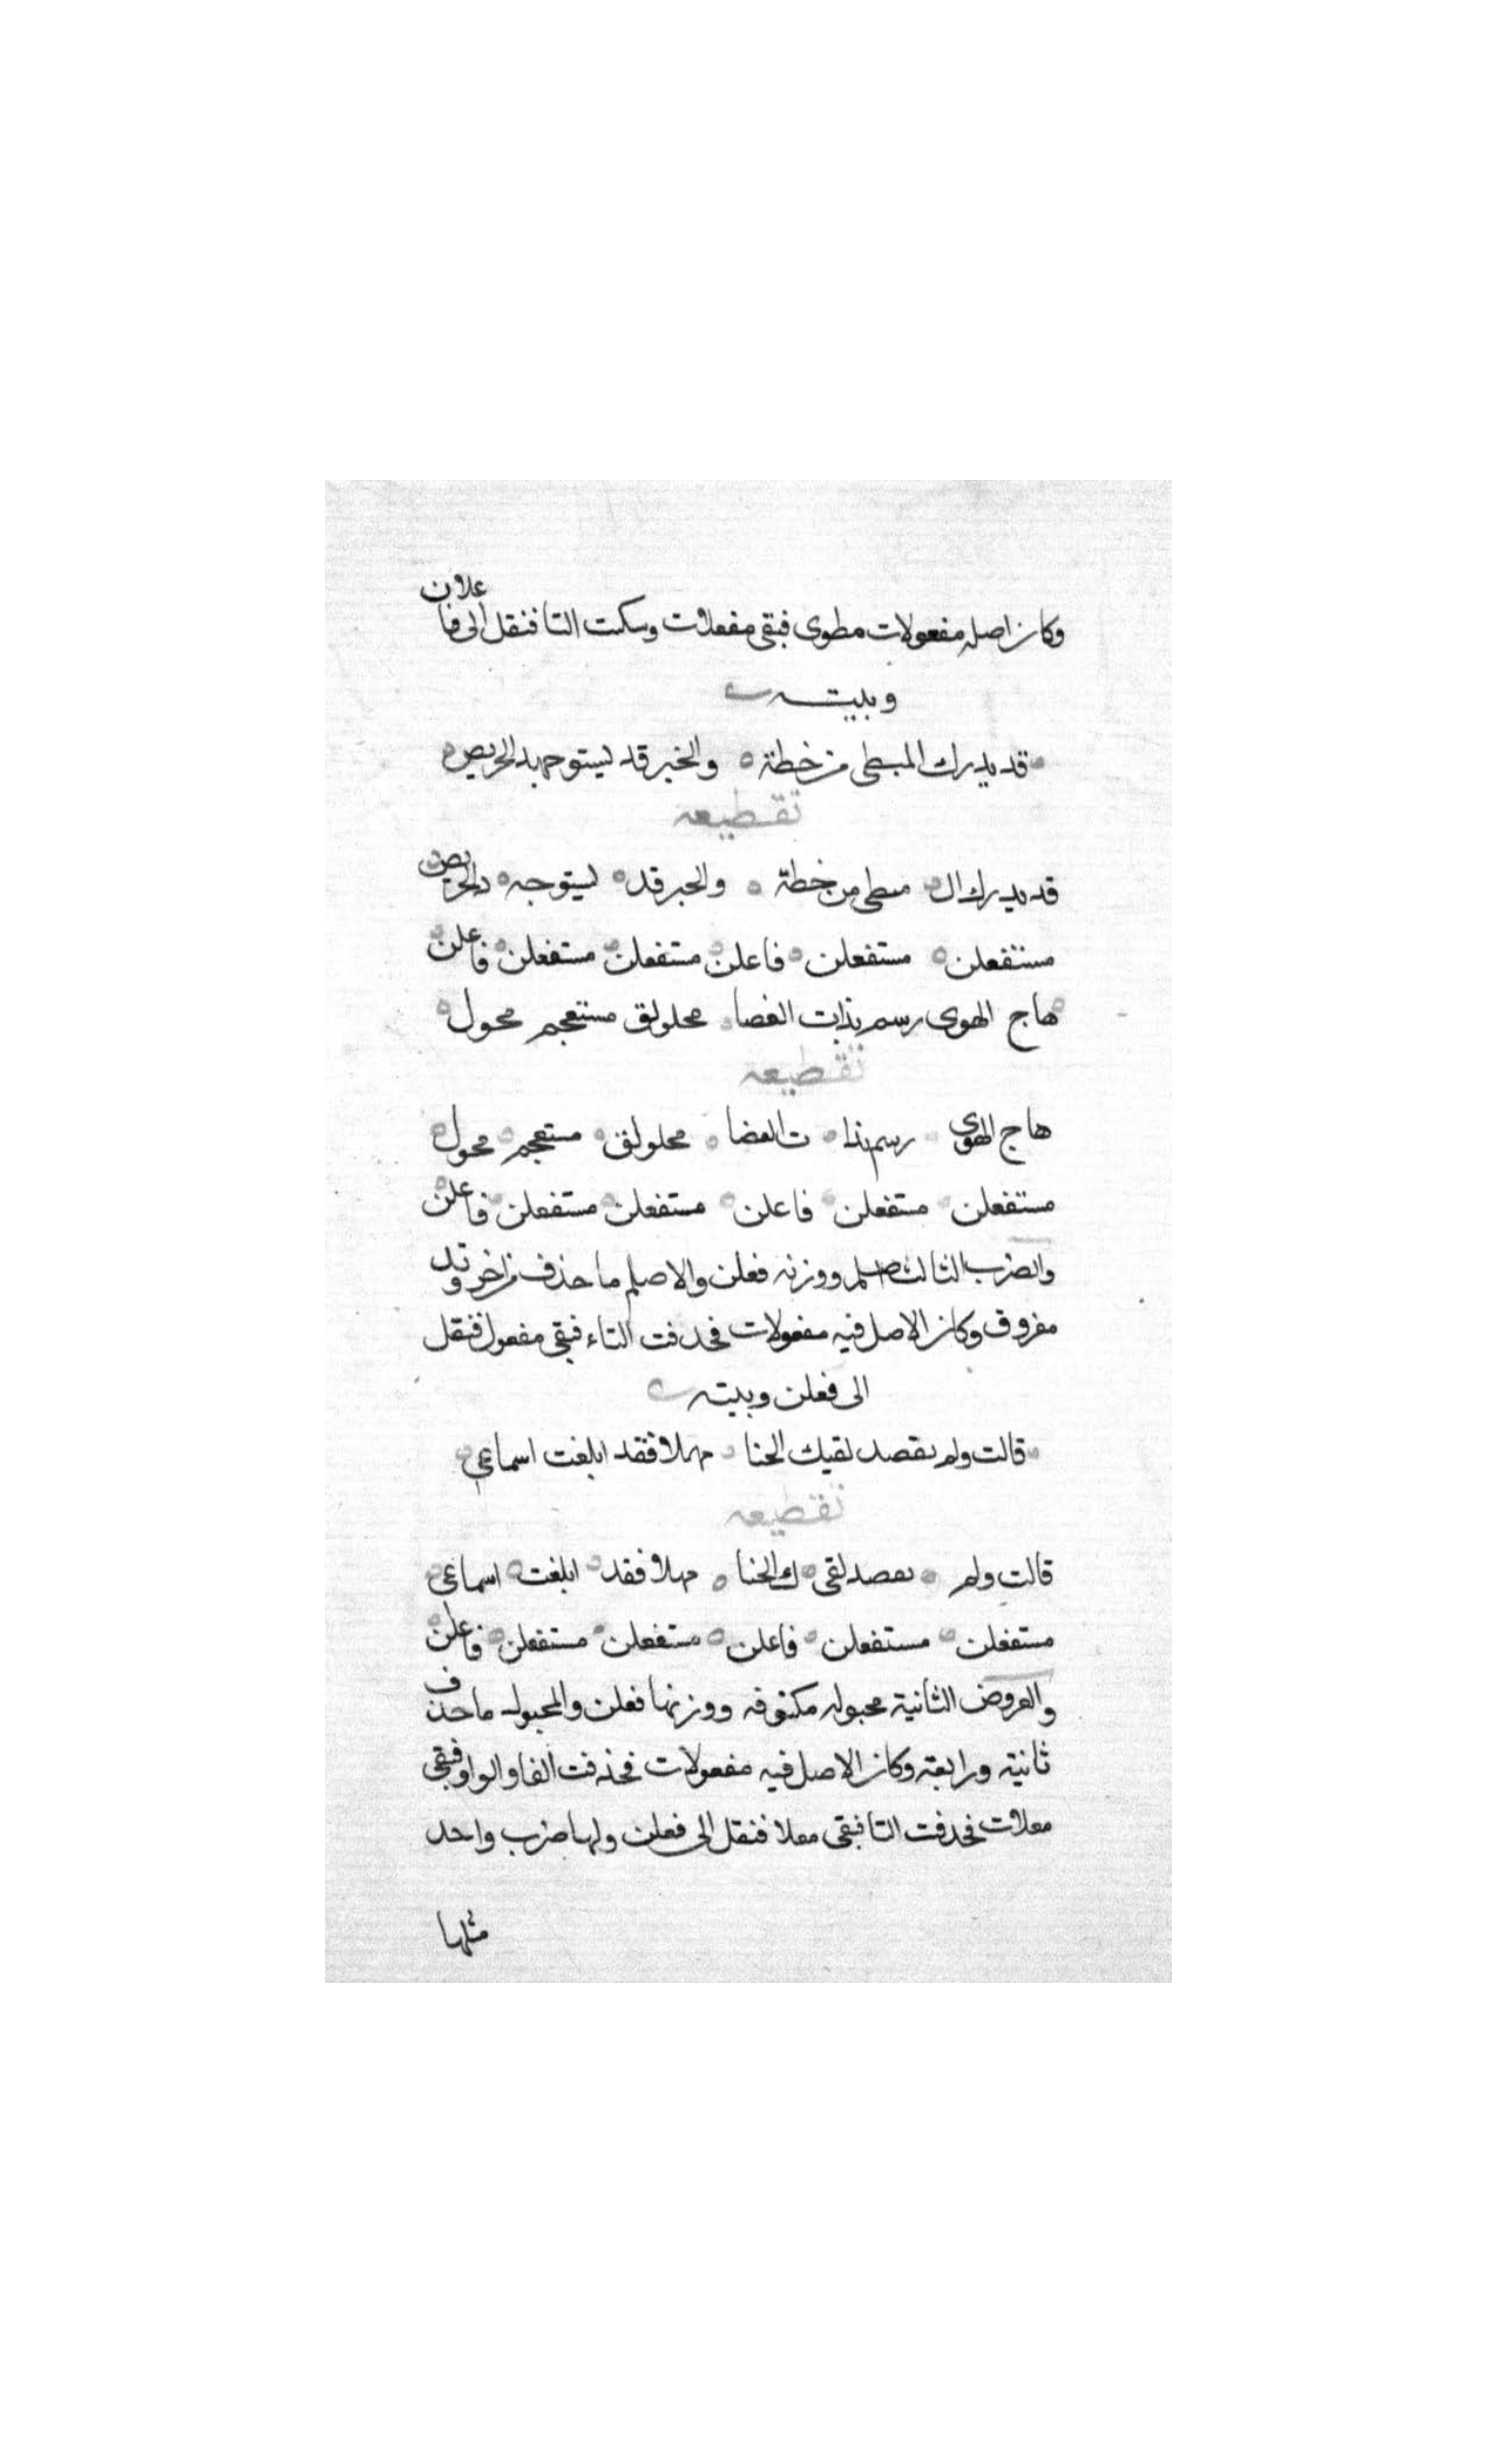 وكان اصله مفعولات مطوى فبقى مفعلات وسكنت التا فنقل الى فاعلان
وبيته
قد يدرك المبطى من خطة ٥ والخير قد يستوجهد الحريص
تقطيعه
قد يدرك ال مبطى من خطة ٥ والخبر قد ٥ ليتوجه ٥ دالحريص
مستفعلن ٥ مستفعلن ٥ فاعلن مستفعلن مستفعلن ٥ فاعلن
هاج الهوى رسم بذات الغصا محلولق مستعجم محول
تقطيعه
هاج الهوى رسم بذا ت الغضا محلولق مستعجم محول
مستفعلن مستفعلن فاعلن مستفعلن مستفعلن فاعلن
والضرب الثالث اصلم ووزنه فعلن والاصلم ما حذف من اخر وتد
مفروق وكان الاصل فيه مفعولات فحدفت التاء فبقى مفعول فنقل
الى فعلن وبيته
قالت ولم تقصد لقيك الخنا مهلا فقد ابلغت اسماعى
تقطيعه
قالت ولم تعصد لقى ك الخنا مهلا فقد ابلغت اسماعى
مستفعلن مستفعلن فاعلن مستفعلن مستفعلن فاعلن
والعروض الثانية مخبوله مكنوفه ووزنها فعلن والمخبول ما حذف
ثانية ورابعة وكان الاصل فيه مفعولات فحذفت الفا والواو فبقى
معلات فحدفت التا فبقى معلا فنقل الى فعلن ولها ضرب واحد
مثلها